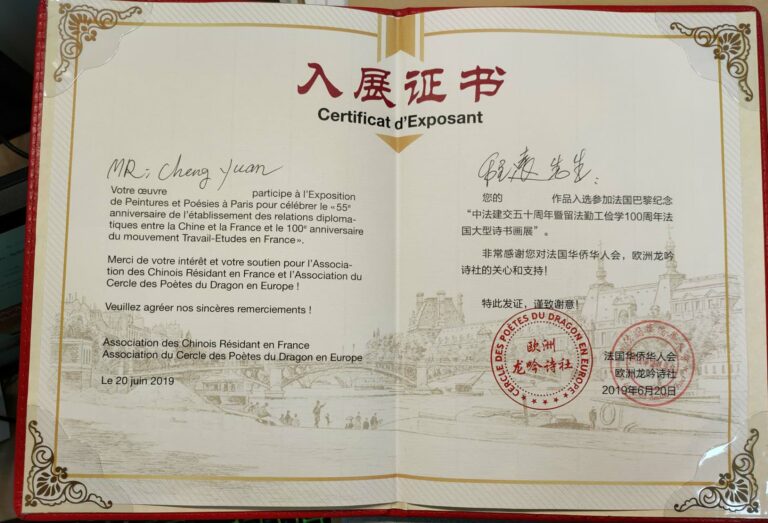 入展证书
Certificat d'Exposant
MR: Cheng Yuan
Votre œuvre participe à l'Exposition
de Peintures et Poésies à Paris pour célébrer le « 55e
anniversaire de l'établissement des relations diploma-
tiques entre la Chine et la France et le 100e anniversaire
du mouvement Travail-Etudes en France».
Merci de votre intérêt et votre soutien pour l'Associa-
tion des Chinois Résidant en France et l'Association du
Cercle des Poètes du Dragon en Europe !
Veuillez agréer nos sincères remerciements !
Association des Chinois Résidant en France
Association du Cercle des Poètes du Dragon en Europe
Le 20 juin 2019
先生:
您的 作品入选参加法国巴黎纪念
“中法建交五十周年暨留法勤工俭学100周年法
国大型诗书画展”。
非常感谢您对法国华侨华人会，欧洲龙吟
诗社的关心和支持！
特此发证，谨致谢意！
CERCLE DES POÈTES DU DRAGON EN EUROPE
欧洲
龙吟诗社
法国华侨华人会
欧洲龙吟诗社
2019年6月20日